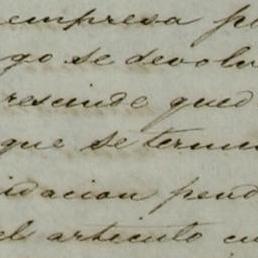 empresa po
go se devolv
rescinde qued
que se termin
idacion pend
el articulo cu